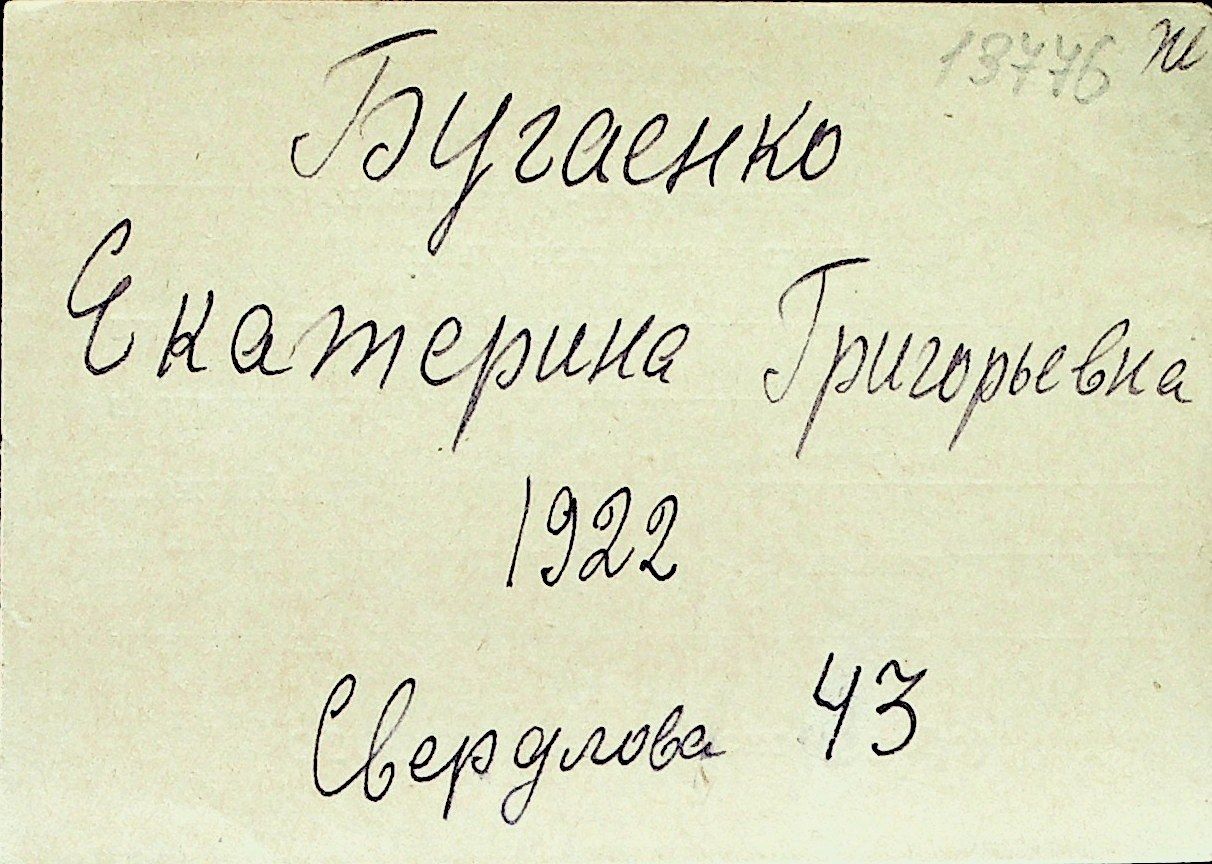 13776
Бугаенко
Екатерина Григорьевна
1922
Свердлова 43